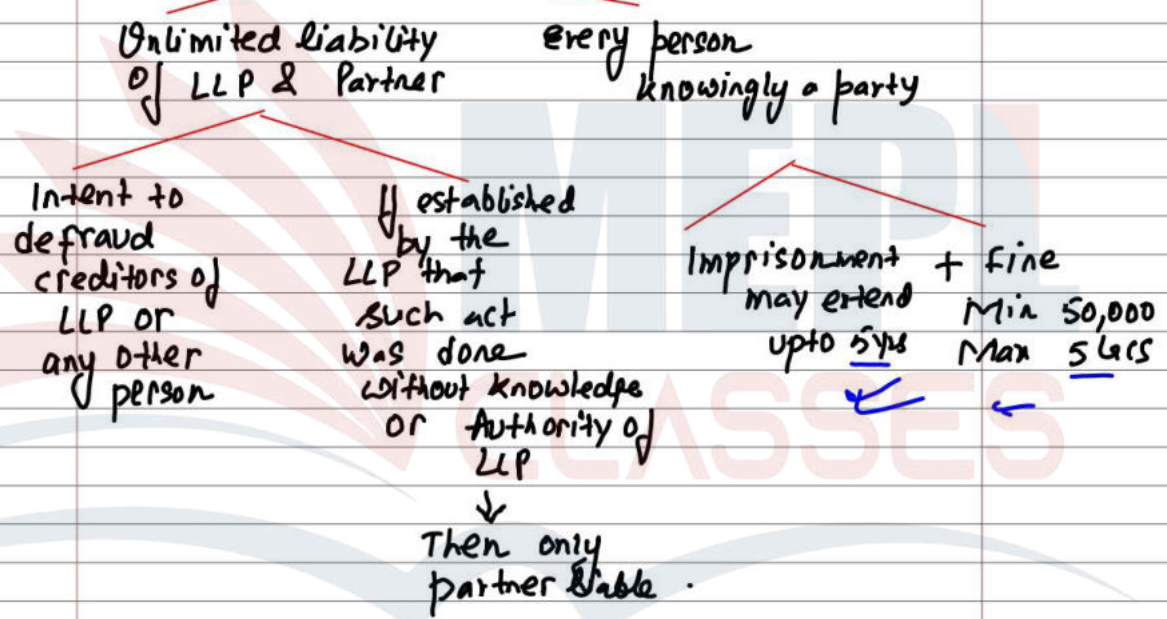 Unlimited liability
Of LLP & Partner
every person
knowingly a party
Intent to
defraud
creditors of
LLP or
any other
person
If established
by the
LLP that
such act
was done
without knowledge
or Authority of
LLP
Then only
partner liable.
Imprisonment
may extend
upto 5yrs
+ fine
Min 50,000
Max 5 lacs
MEPL
CLASSES